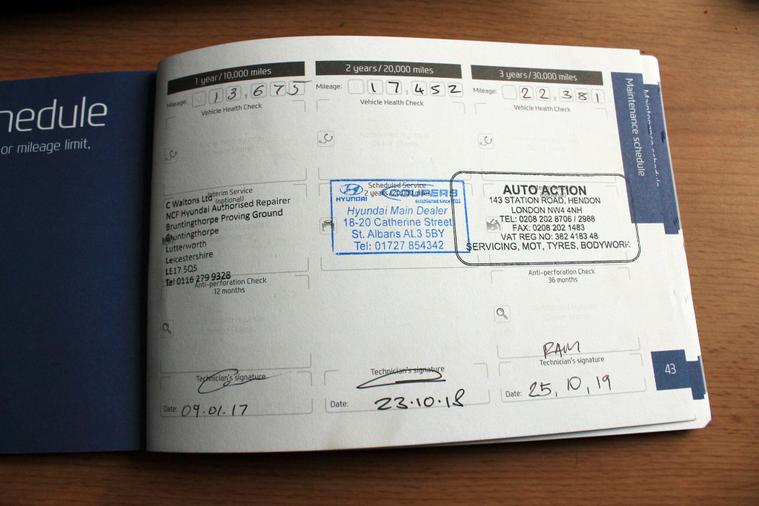 hedule
or mileage limit,
1 year/10,000 miles
Mileage: 13,675
Vehicle Health Check
Interim Service
(optional)
C Waltons Ltd
NCF Hyundai Authorised Repairer
Bruntingthorpe Proving Ground
Bruntingthorpe
Lutterworth
Leicestershire
LE17 5QS
Tel 0116 279 9328
Anti-perforation Check
12 months
Technician's signature
Date: 09.01.17
2 years/20,000 miles
Mileage: 17,452
Vehicle Health Check
Scheduled Service
2 years /20,000 miles
HYUNDAI
COOPERS
Hyundai Main Dealer
18-20 Catherine Street
St. Albans AL3 5BY
Tel: 01727 854342
Technician's signature
Date: 23.10.18
3 years/30,000 miles
Mileage: 22,381
Vehicle Health Check
AUTO ACTION
143 STATION ROAD, HENDON
LONDON NW4 4NH
TEL: 0208 202 8706 / 2988
FAX: 0208 202 1483
VAT REG NO: 382 4183 48
SERVICING, MOT, TYRES, BODYWORK
Anti-perforation Check
36 months
Technician's signature
Date: 25,10,19
Maintenance schedule
Maintenance schedule
43